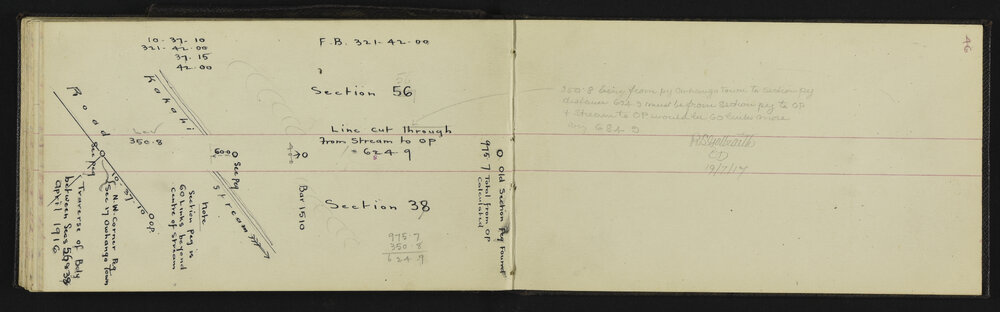 10. 37. 10
321. 42. 00
37. 15
42. 00
F. B. 321. 42. 00
Kakahi
Stream
Road
See Peg
Section 56
56
Line cut through
From Stream to OP
= 624.9
350.8
600
See Peg
Bar 1510
Section 38
10. 37. 10
O.P.
N.W. Corner Peg
Sec 17 Owhango Town
Traverse of Bdy
between Secs 56 & 38
April 1916
Note
Section Peg is
60 Links beyond
centre of Stream
975.7
350.8
624.9
Old Section Peg Found
975.7 Total from OP
calculated
46
350.8 being from peg Owhango Town to Section peg
distance 624.9 must be from Section peg to OP
& Stream to OP would be 60 links more
624.9
19/7/17